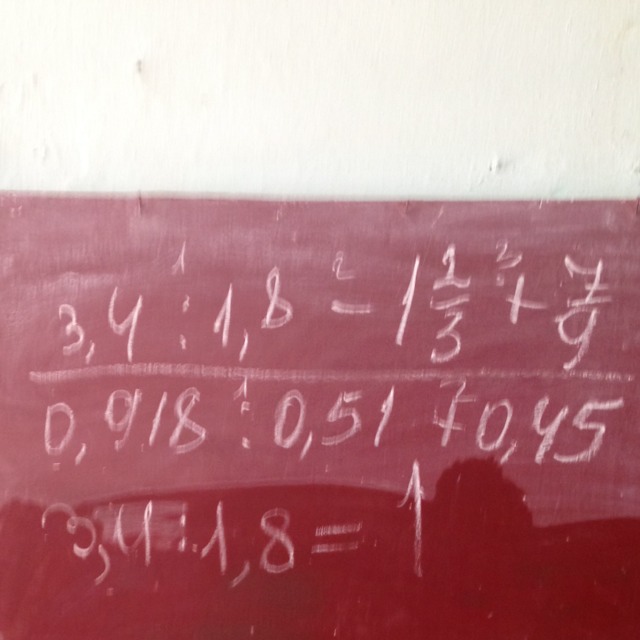 3,4 : 1,8 - 1 2/3 + 7/9
0,918 : 0,51 + 0,45
3,4 : 1,8 = 1